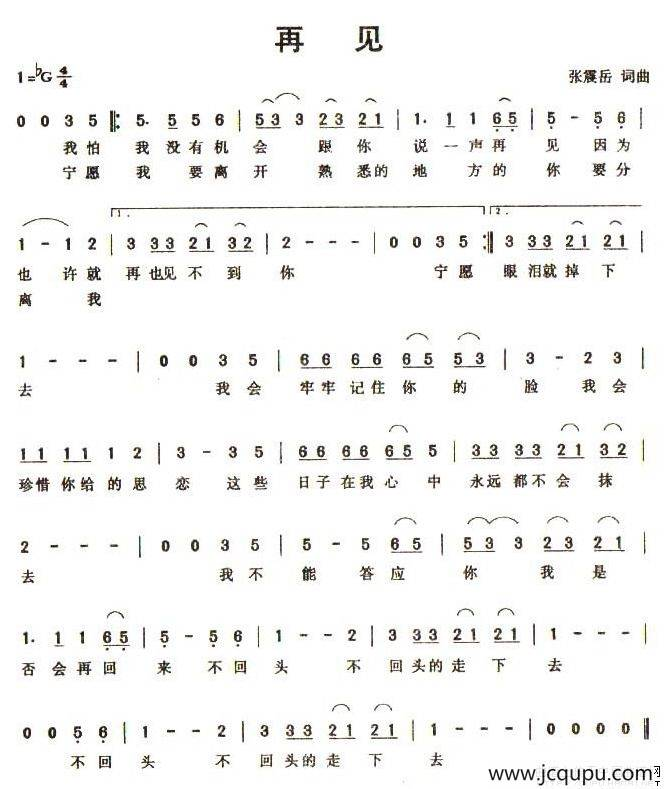 再 见
1=♭G 4/4 张震岳 词曲
0 0 3 5 ‖: 5. 5 5 6 | 53 3 23 21 | 1. 1 1 65 | 5 - 5 6 |
我怕 我 没有机 会 跟你 说一声再 见 因为
宁愿 我 要离 开 熟悉的 地 方的 你 要分
1 - 1 2 | 1. 3 33 21 32 | 2 - - - | 0 0 3 5 :‖ 2. 3 33 21 21 |
也 许就 再也见不到 你 宁愿 眼泪就掉下
离 我
1 - - - | 0 0 3 5 | 66 66 65 53 | 3 - 2 3 |
去 我会 牢牢记住你 的 脸 我会
11 11 1 2 | 3 - 3 5 | 66 66 65 5 | 33 33 21 32 |
珍惜你给的思 恋 这些 日子在我心 中 永远都不会抹
2 - - - | 0 0 3 5 | 5 - 5 65 | 53 3 23 21 |
去 我不 能 答应 你 我是
1. 1 1 65 | 5 - 5 6 | 1 - - 2 | 3 33 21 21 | 1 - - - |
否会再回 来 不回 头 不 回头的走下 去
0 0 5 6 | 1 - - 2 | 3 33 21 21 | 1 - - - | 0 0 0 0 ‖
不回 头 不 回头的走 下 去
www.jcqupu.com